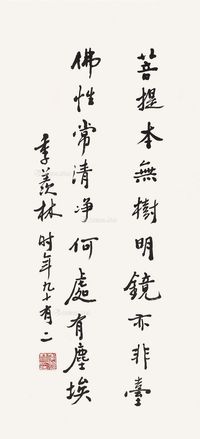 菩提本無樹明鏡亦非臺
佛性常清净何處有塵埃
季羨林时年九十有二